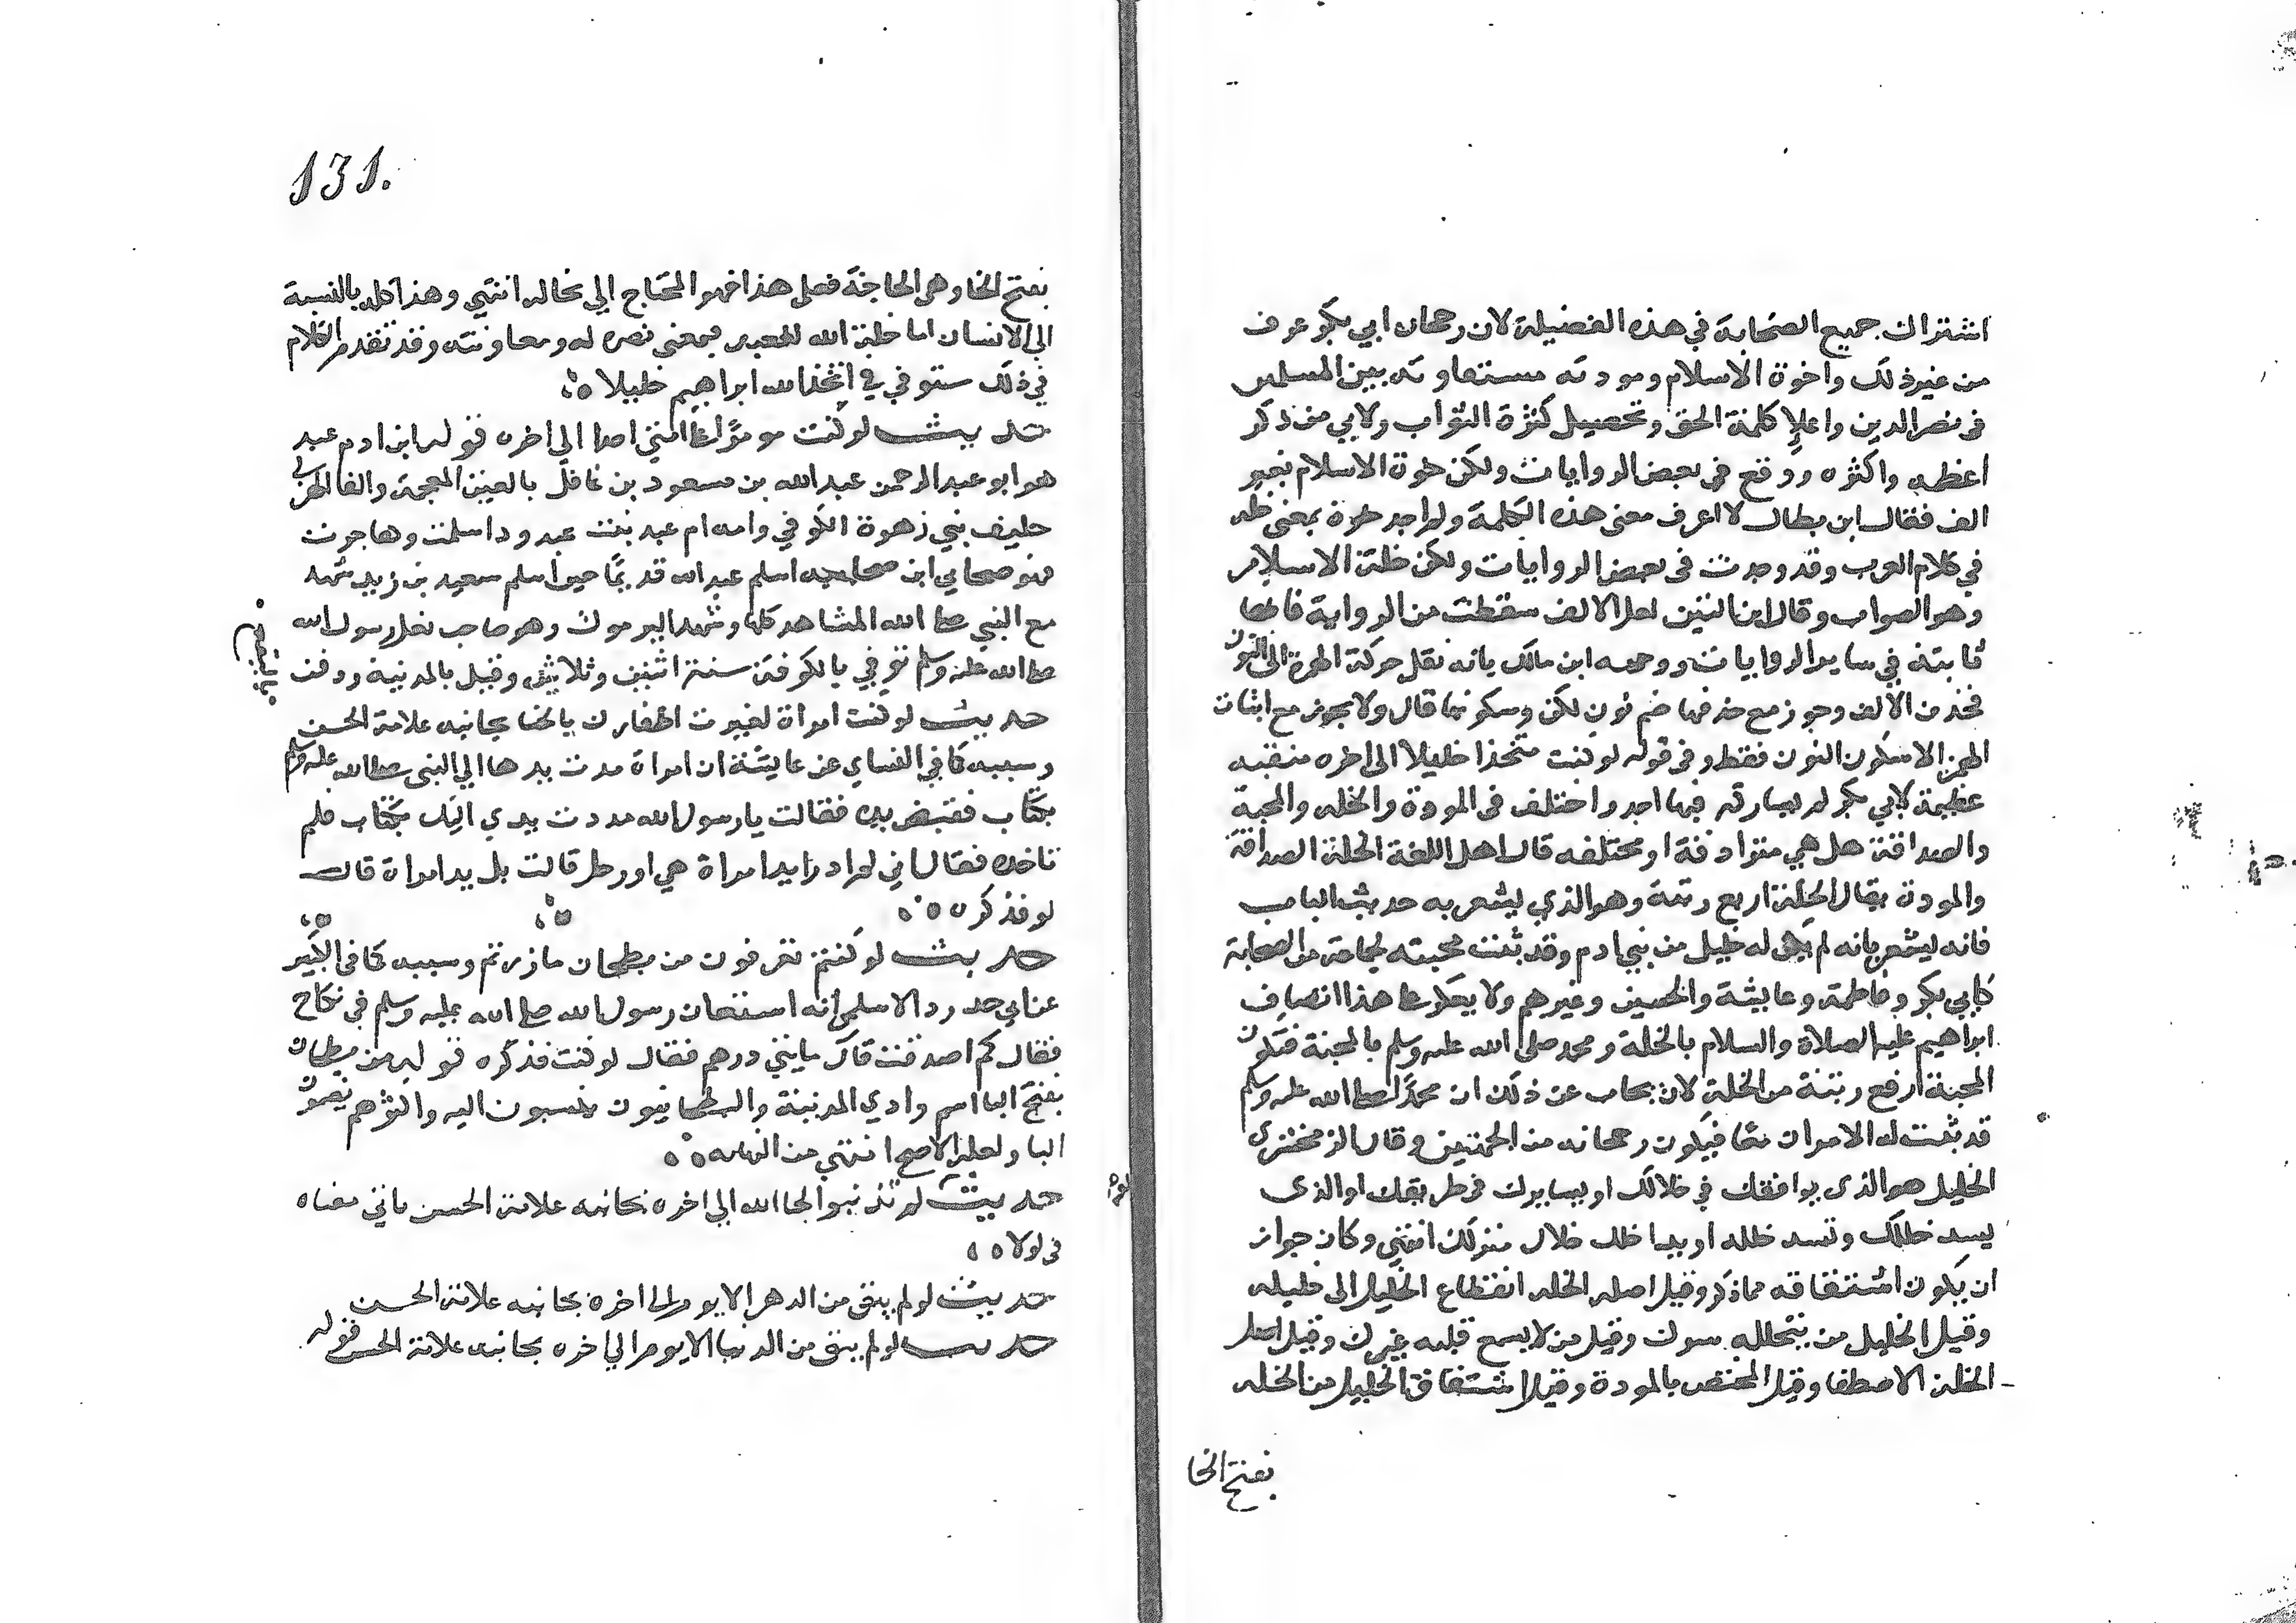 اشتراك جميع الصحابة في هذه الفضيلة لان رجحان ابي بكر عرف
من غير ذلك واخوة الاسلام ومودته متفاوته بين المسلمين
في نصر الدين واعلاء كلمة الحق وتحصيل كثرة الثواب ولابي من ذكر
اعظمه واكثره ووقع في بعض الروايات ولكن خوة الاسلام بغير
الف فقال ابن بطال لا اعرف معنى هذه الكلمة ولم اجد خوة بمعنى خلة
في كلام العرب وقد وجدت في بعض الروايات ولكن خلة الاسلام
وهو الصواب وقال ابن التين لعل الالف سقطت من الرواية فانها
ثابتة في ساير الروايات ووجهه ابن مالك بانه نقل حركة الهمزة الى النون
فحذف الالف وجوز مع حذفها ضم نون لكن وسكونها قال ولا يجوز مع اثبات
الهمزة الا سكون النون فقط وفي قوله لو كنت متخذا خليلا الى اخره منقبة
عظيمة لابي بكر لم يشاركه فيها احد واختلف في المودة والخله والمحبة
والصداقة هل هي مترادفة او مختلفه قال اهل اللغة الخلة الصداقة
والمودة يقال الخلة ارفع رتبة وهو الذي يشعر به حديث الباب
فانه يشعر بانه لم يكن له خليل من بني ادم وقد ثبتت محبته لجماعة من الصحابة
كابي بكر وفاطمة وعايشة والحسين وغيرهم ولا يعكر على هذا اتصاف
ابراهيم عليه الصلاة والسلام بالخلة ومحمد صلى الله عليه وسلم بالمحبة فتكون
المحبة ارفع رتبة من الخلة لانه يجاب عن ذلك ان محمدا صلى الله عليه وسلم
قد ثبت له الامران معا فيكون رجحانه من الجهتين وقال الزمخشري
الخليل هو الذي يوافقك في خلالك او يسايرك في طريقك او الذي
يسد خللك وتسد خلله او يداخلك خلال منزلك انتهى وكان جواز
ان يكون اشتقاقه مما ذكر وقيل اصله الخله انقطاع الخليل الى خليله
وقيل الخليل من يتخلله سرك وقيل من لا يسع قلبه غيرك وقيل اصل
الخلة الاصطفا وقيل المختص بالمودة وقيل اشتقاق الخليل من الخله
بفتح الخا
131.
بفتح الخا وهي الحاجة فعلى هذا فهو المحتاج الي تخاله انتهي وهذا كله بالنسبة
الى الانسان اما خلة الله للعبد فبمعنى نصره له ومعاونته وقد تقدم الكلام
في ذلك مستوفي في اتخذ الله ابراهيم خليلا
حديث لو كنت مومرا على امتي احدا الي اخره قوله ابن ام عبد
هو ابو عبد الرحمن عبد الله بن مسعود بن غافل بالغين المعجمة والفا الهذلي
حليف بني زهرة الكوفي وامه ام عبد بنت عبد ود اسلمت وهاجرت
فهو صحابي ابن صحابيه اسلم عبد الله قديما حين اسلم سعيد بن زيد شهد
مع النبي صلى الله المشاهد كلها وشهد اليرموك وهو صاحب نعل رسول الله
صلى الله عليه وسلم توفي بالكوفة سنة اثنين وثلاثين وقيل بالمدينة ودفن
بالبقيع
حديث لو كنت امراة لغيرت اظفارك بالحنا بجانبه علامة الحسن
وسببه كما في النساي عن عايشة ان امراة مدت يدها الي النبي صلى الله عليه وسلم
بكتاب فقبض يده فقالت يا رسول الله مددت يدي اليك بكتاب فلم
تاخذه فقال اني لم ادر ايد امراة هي او رجل قالت بل يد امراة قال
لو فذكره
حديث لو كنتم تغرفون من بطحان ما زدتم وسببه كما في الكبير
عن ابي حدرد الاسلمي انه استعان رسول الله صلى الله عليه وسلم في نكاح
فقال كم اصدقت قال مايتي درهم فقال لو كنت فذكره قوله من بطحان
بفتح البا اسم وادي المدينة والبطحانيون ينسبون اليه واكثرهم يضمون
البا ولعله الاصح انتهي من النهاية
حديث لو لم تذنبوا لجا الله الي اخره بجانبه علامة الحسن ياتي معناه
في لولا
حديث لو لم يبق من الدهر الا يوم الى اخره بجانبه علامة الحسن
حديث لو لم يبق من الدنيا الا يوم الي اخره بجانبه علامة الحسن قوله